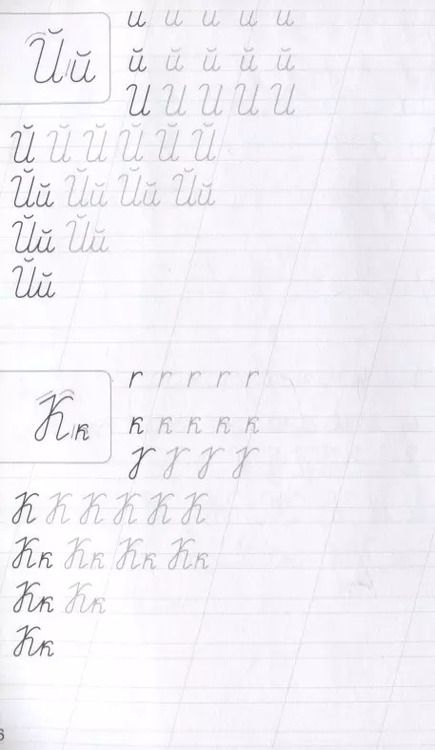 Йй
и и и и и
й й й й й
И И И И И
Й Й Й Й Й Й
Йй Йй Йй Йй
Йй Йй
Йй
Кк
к к к к к
К К К К К К
Кк Кк Кк Кк
Кк Кк
Кк
6